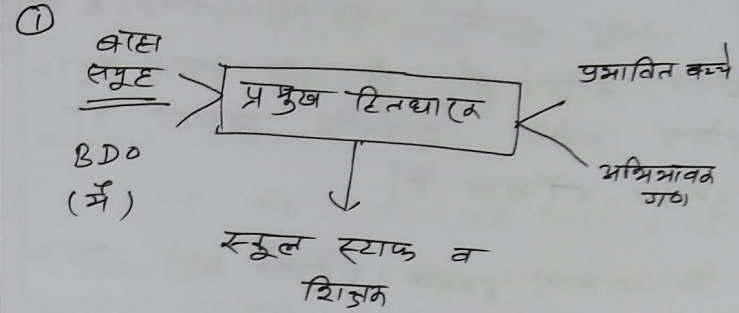 ①
बाह्य
समूह
प्रमुख हितधारक
प्रभावित बच्चे
BDO
(मैं)
अभिभावक
गण
स्कूल स्टाफ व
शिक्षक